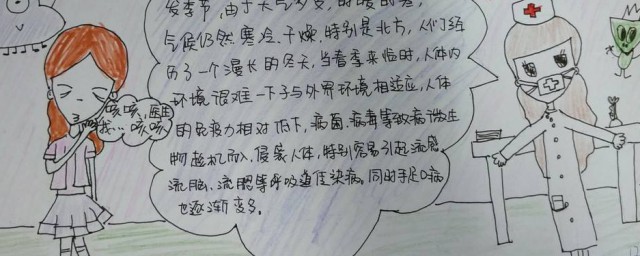 发季节，由于天气多变，时暖时寒，
气候仍然寒冷、干燥，特别是北方，人们经
历了一个漫长的冬天，当春季来临时，人体内
环境很难一下子与外界环境相适应，人体
的免疫力相对低下，病菌、病毒等致病微生
物趁机而入，侵袭人体，特别容易引起流感
流脑、流腮等呼吸道传染病。同时手足口病
也逐渐变多。
咳咳，医生
我…咳咳